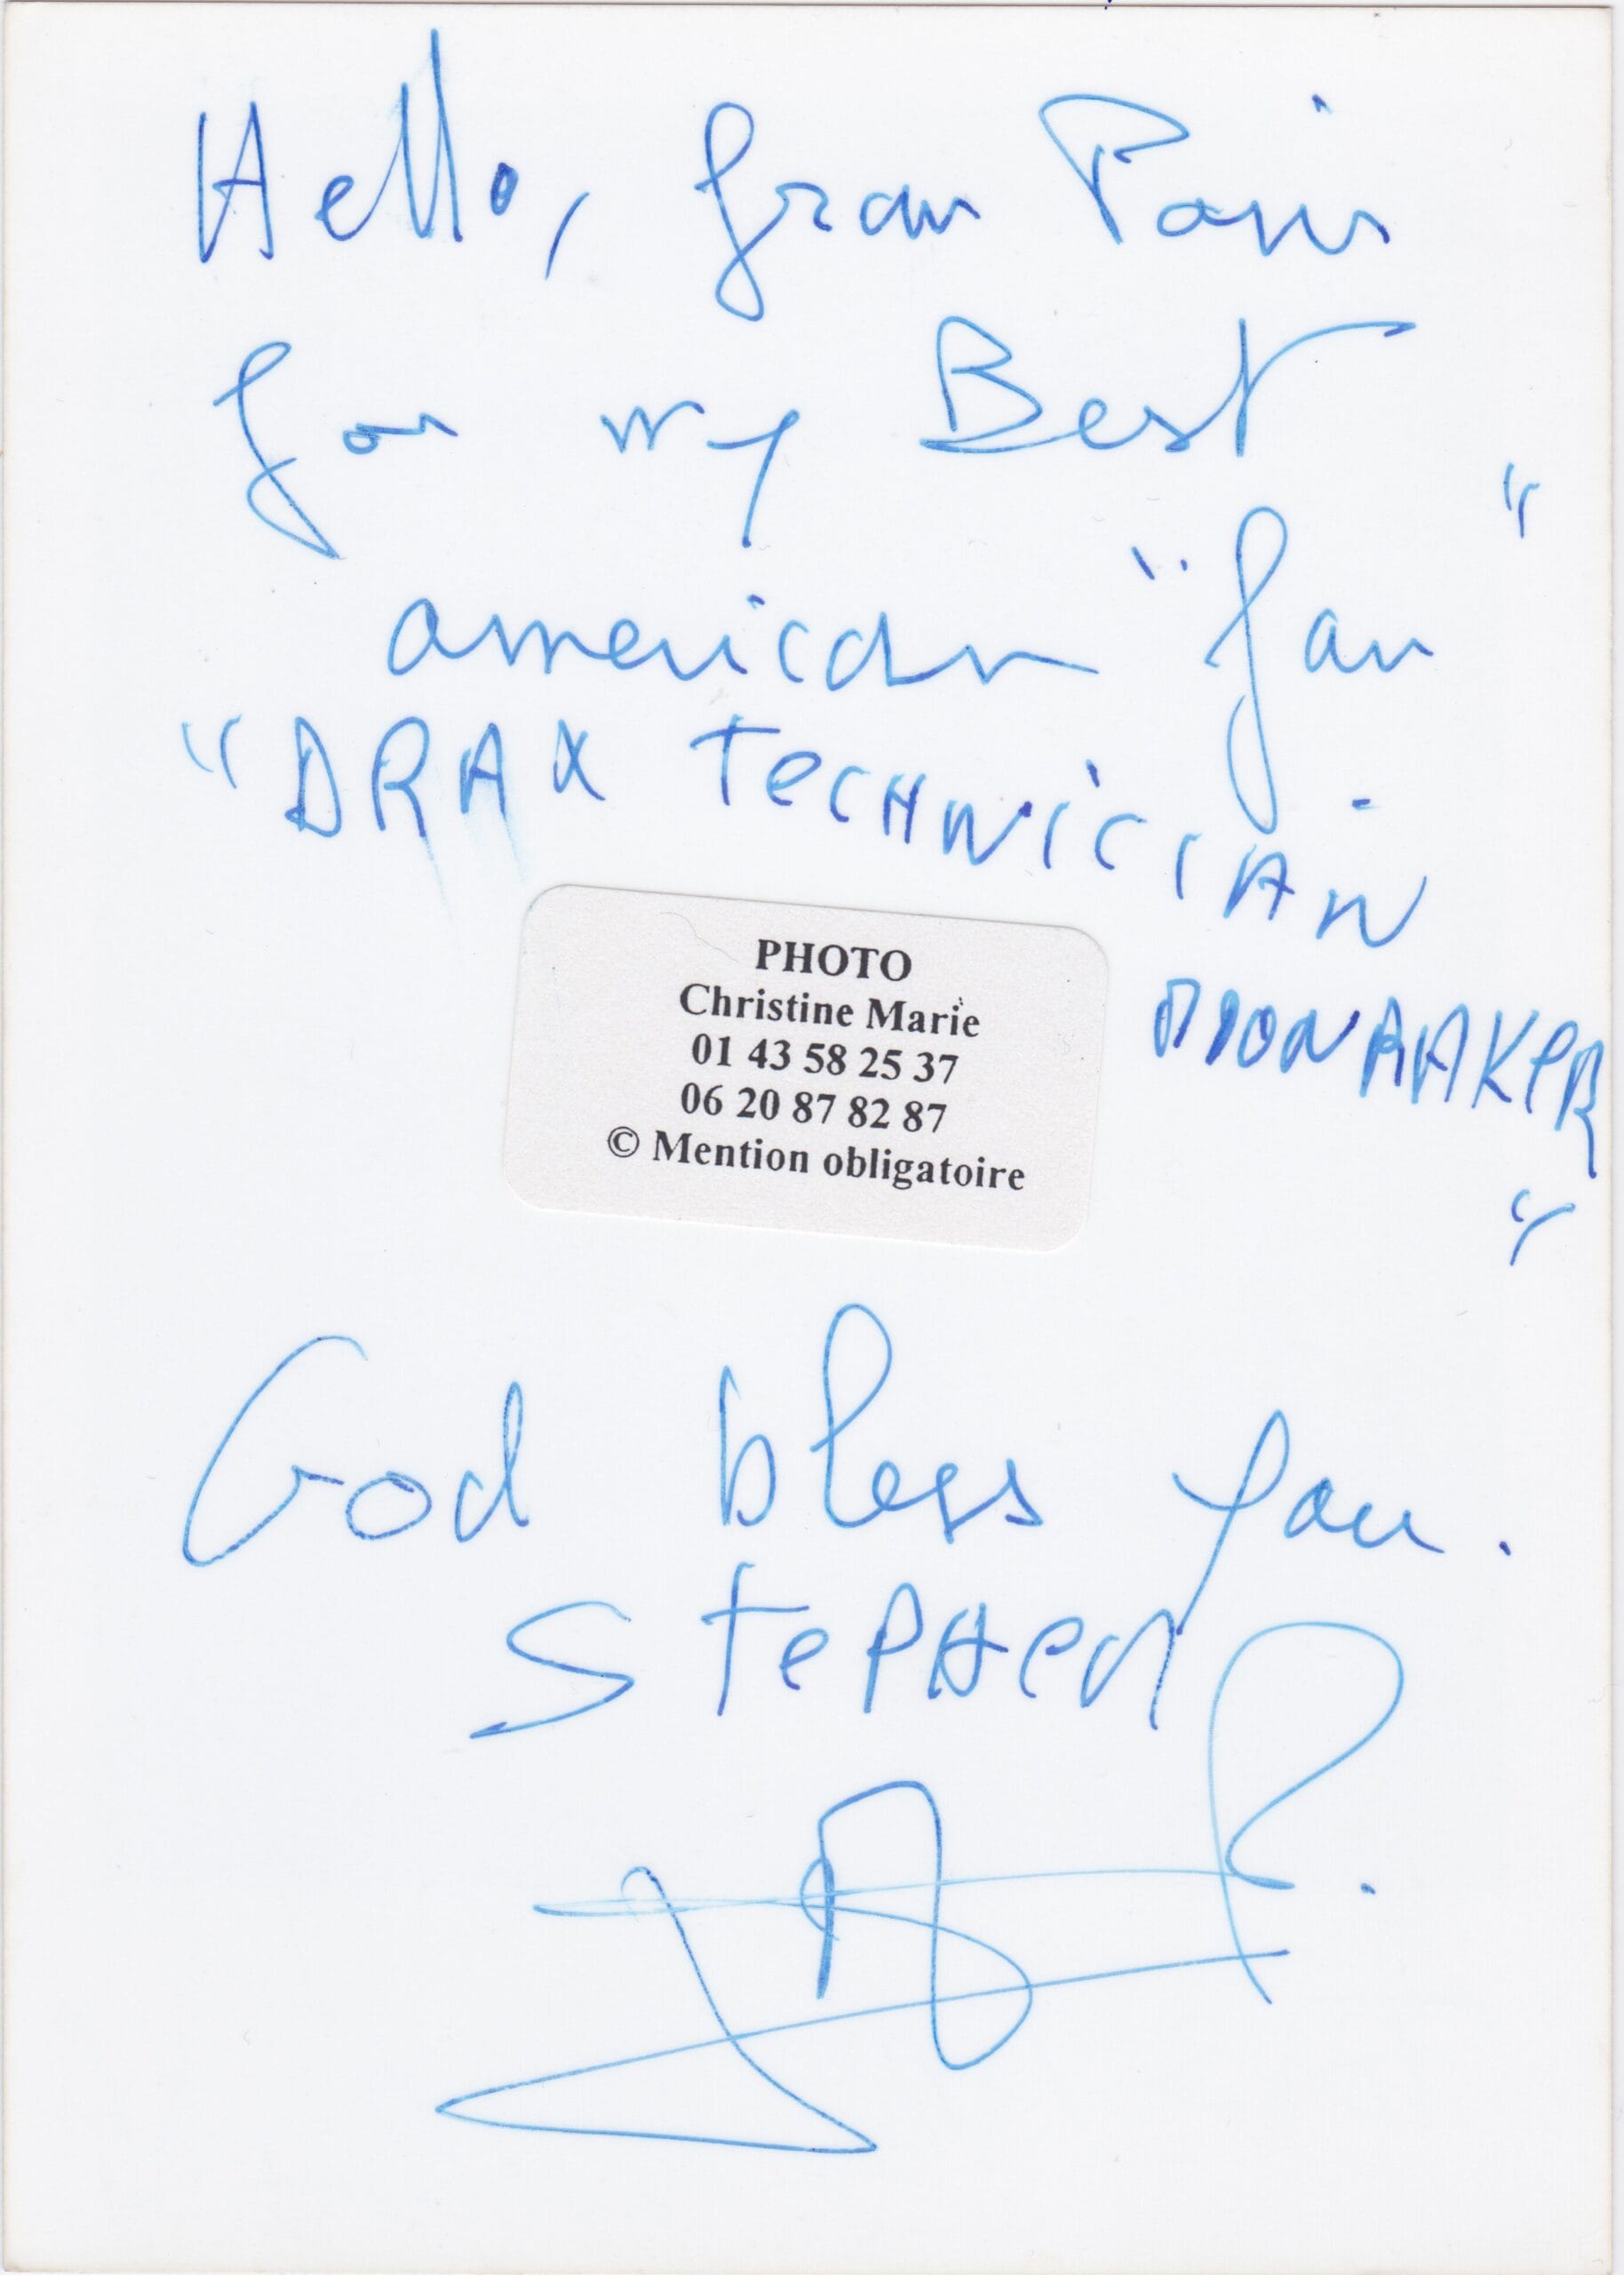 Hello, from Paris
for my Best
american "fan"
"DRAX TecHNiCiAN
MOONRAKER"
PHOTO
Christine Marie
01 43 58 25 37
06 20 87 82 87
© Mention obligatoire
God bless you.
StePHen